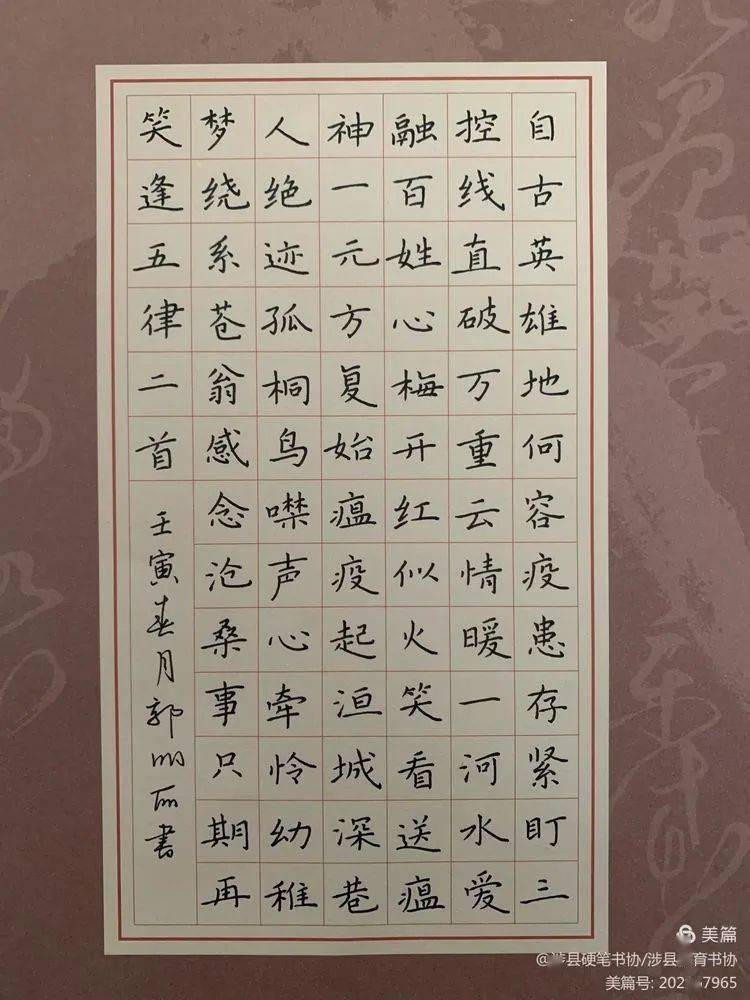 自古英雄地何容疫患存紧盯三
控线直破万重云情暖一河水爱
融百姓心梅开红似火笑看送瘟
神一元方复始瘟疫起洹城深巷
人绝迹孤桐鸟噤声心牵怜幼稚
梦绕系苍翁感念沧桑事只期再
笑逢五律二首
壬寅春月郭丽书
美篇
@涉县硬笔书协/涉县 育书协
美篇号: 202 7965